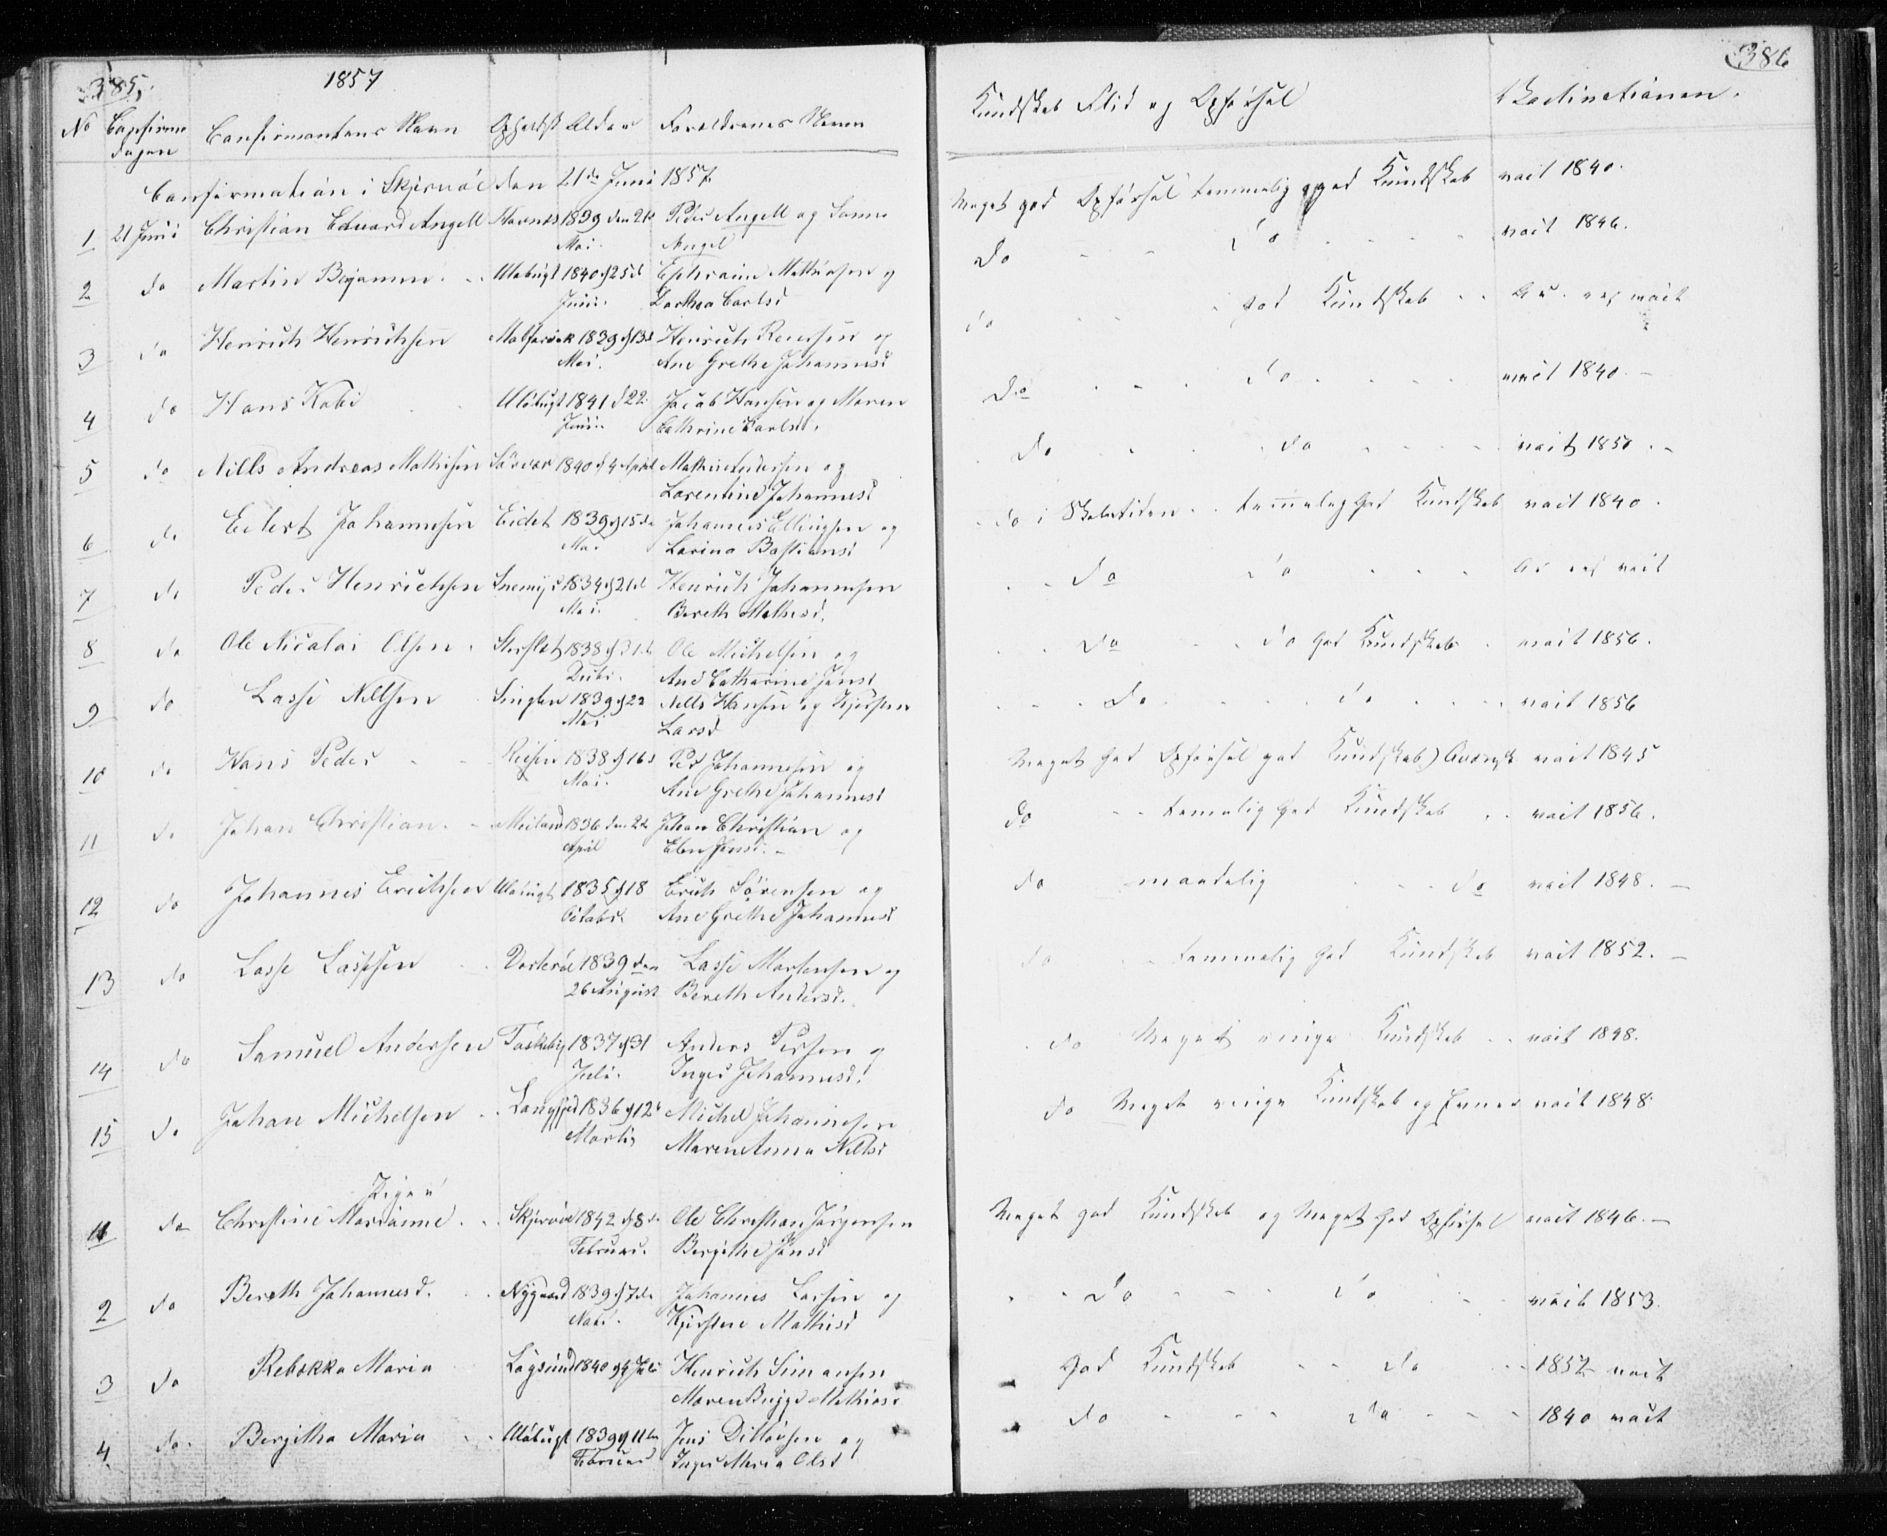 385, 1857
No Confirm dagen Confirmantens Navn Opholdst Alder Forældrenes Navne
Confirmation i Skjervøe den 21de Juni 1857.
1 21 Juni Christian Eduard Angell Havnes 1839 den 21 Peder Angell og
Mai. Angel
2 do Martin Benjamin Uløbugt 1840 d 25d Ephraim Mathiesen og
Juni. Dorthea Carlsd
3 do Henrich Henrichsen 1839 d 13d Henrich og
Mai. Ane Grethe Johannesd
4 do Hans Kobi Uløbugt 1841 d 22 Jacob Hansen og Maren
Juni. Cathrine Karlsd.
5 do Nills Andreas Mathisen Sørvær 1840 d 4 April Mathis Andersen og
Lorentine Johannesd
6 do Eilert Johannesen Eidet 1839 d 15de Johannes Ellingsen og
Mai Larina Bastiansd
7 do Peder Henrichsen 1834 d 21d Henrich Johannesen
Mai. Bereth Mathisd.
8 do Ole Nicolai Olsen 1838 d 31d Ole Michelsen og
Ane Catharine Jensd
9 do Lasse Nillsen 1839 d 22 Nills Hansen og Kjersten
Mai Larsd
10 do Hans Peder Reisen 1838 d 16d Ped Johannesen og
Mai. Ane Grethe Johannesd
11 do Johan Christian Meiland 1836 den 22 Johan Christian og
April Elen Jensd.
12 do Johannes Erichsen Uløbugt 1835 d 18 Erich Sørensen og
Octobr. Ane Grethe Johannesd
13 do Lasse Lassesen Vorterøe 1839 den Lasse Mortensen og
26 August Bereth Andersd.
14 do Samuel Andersen 1837 d 31 Anders Persen og
Juli. Inger Johannesd.
15 do Johan Michelsen Langfjd 1836 d 12t Michel Johannesen
Marts Maren Anna Nillsd
Piger
1 do Christine Marianne Skjervøe 1842 d 8d Ole Christian Jørgensen
Februar. Bergithe Jensd
2 do Bereth Johannesd. Nygaard 1839 d 7de Johannes Larsen og
Kjersten Mathisd
3 do Rebækka Maria Løgsund 1840 d 4 Juli Henrich Simonsen
Maren Mathisd
4. do. Bergitha Maria Uløbugt 1839 d 11te Jens Ditlovsen og
Februar Inger Maria Olsd
386
Kundskab Flid og Opførsel Vaccinationen.
Meget god Opførsel temmelig god Kundskab vacc 1840.
do do vacc 1846.
do god Kundskab
do do vacc 1840.
do do vacc 1850.
do i Skoletiden temmelig god Kundskab vacc 1840.
do do
do do god Kundskab vacc 1856.
do do vacc 1856
Meget god Opførsel god Kundskab vacc 1845
do temmelig god Kundskab vacc 1856.
do maadelig do vacc 1848.
do temmelig god Kundskab vacc 1852.
do Meget ringe Kundskab vacc 1848.
do Meget ringe Kundskab og Evner vacc 1848
Meget god Kundskab og Meget god Opførsel vacc 1846.
do do vacc 1853.
god Kundskab do 1857 vacc
do do 1840 vacc